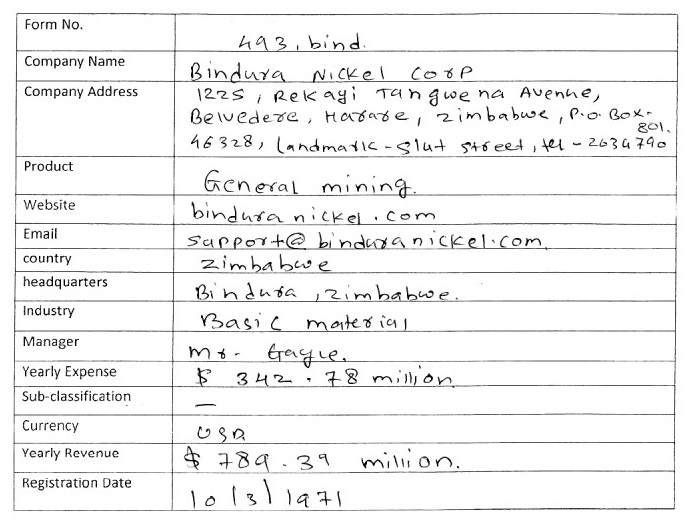 Form No. 493, bind.
Company Name Bindura Nickel Corp
Company Address 1225, Rekayi Tangwena Avenue,
Belvedere, Harare, Zimbabwe, P.O. Box-
801.
46328, Landmark - Slut street, tel - 2634790
Product General mining.
Website bindura nickel.com
Email support@binduranickel.com.
country Zimbabwe
headquarters Bindura, Zimbabwe.
Industry Basic material
Manager Mr. Gayle.
Yearly Expense $ 342.78 million
Sub-classification —
Currency USD
Yearly Revenue $ 789.39 million.
Registration Date 10/3/1971